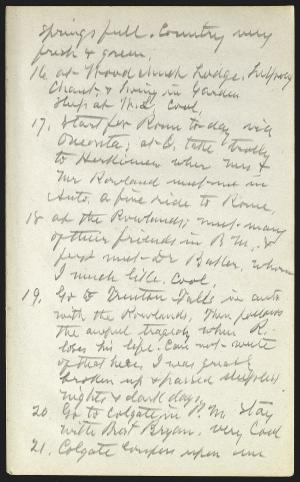 springs full. Country very
fresh & green.
16 at Woodchuck Lodge,
Chant. & Hoeing in Garden
Sleep at W.L. Cool.
17. Start for Rome to-day via
Oneonta; at C. take trolly
to Herkimer where Mrs &
Mr Rowland meet me in
Auto. a fine ride to Rome.
18 at the Rowlands; meet many
of their friends in P.M. &
first meet Dr Butler, whom
I much like. Cool.
19. Go to Trenton Falls in auto
with the Rowlands, Then follows
the awful tragedy when R.
loses his life. Can not write
of that here. I was greatly
broken up & passed sleepless
nights & dark days.
20. Go to Colgate in P.M. Stay
with Prest Bryan. very Cool
21. Colgate confers upon me